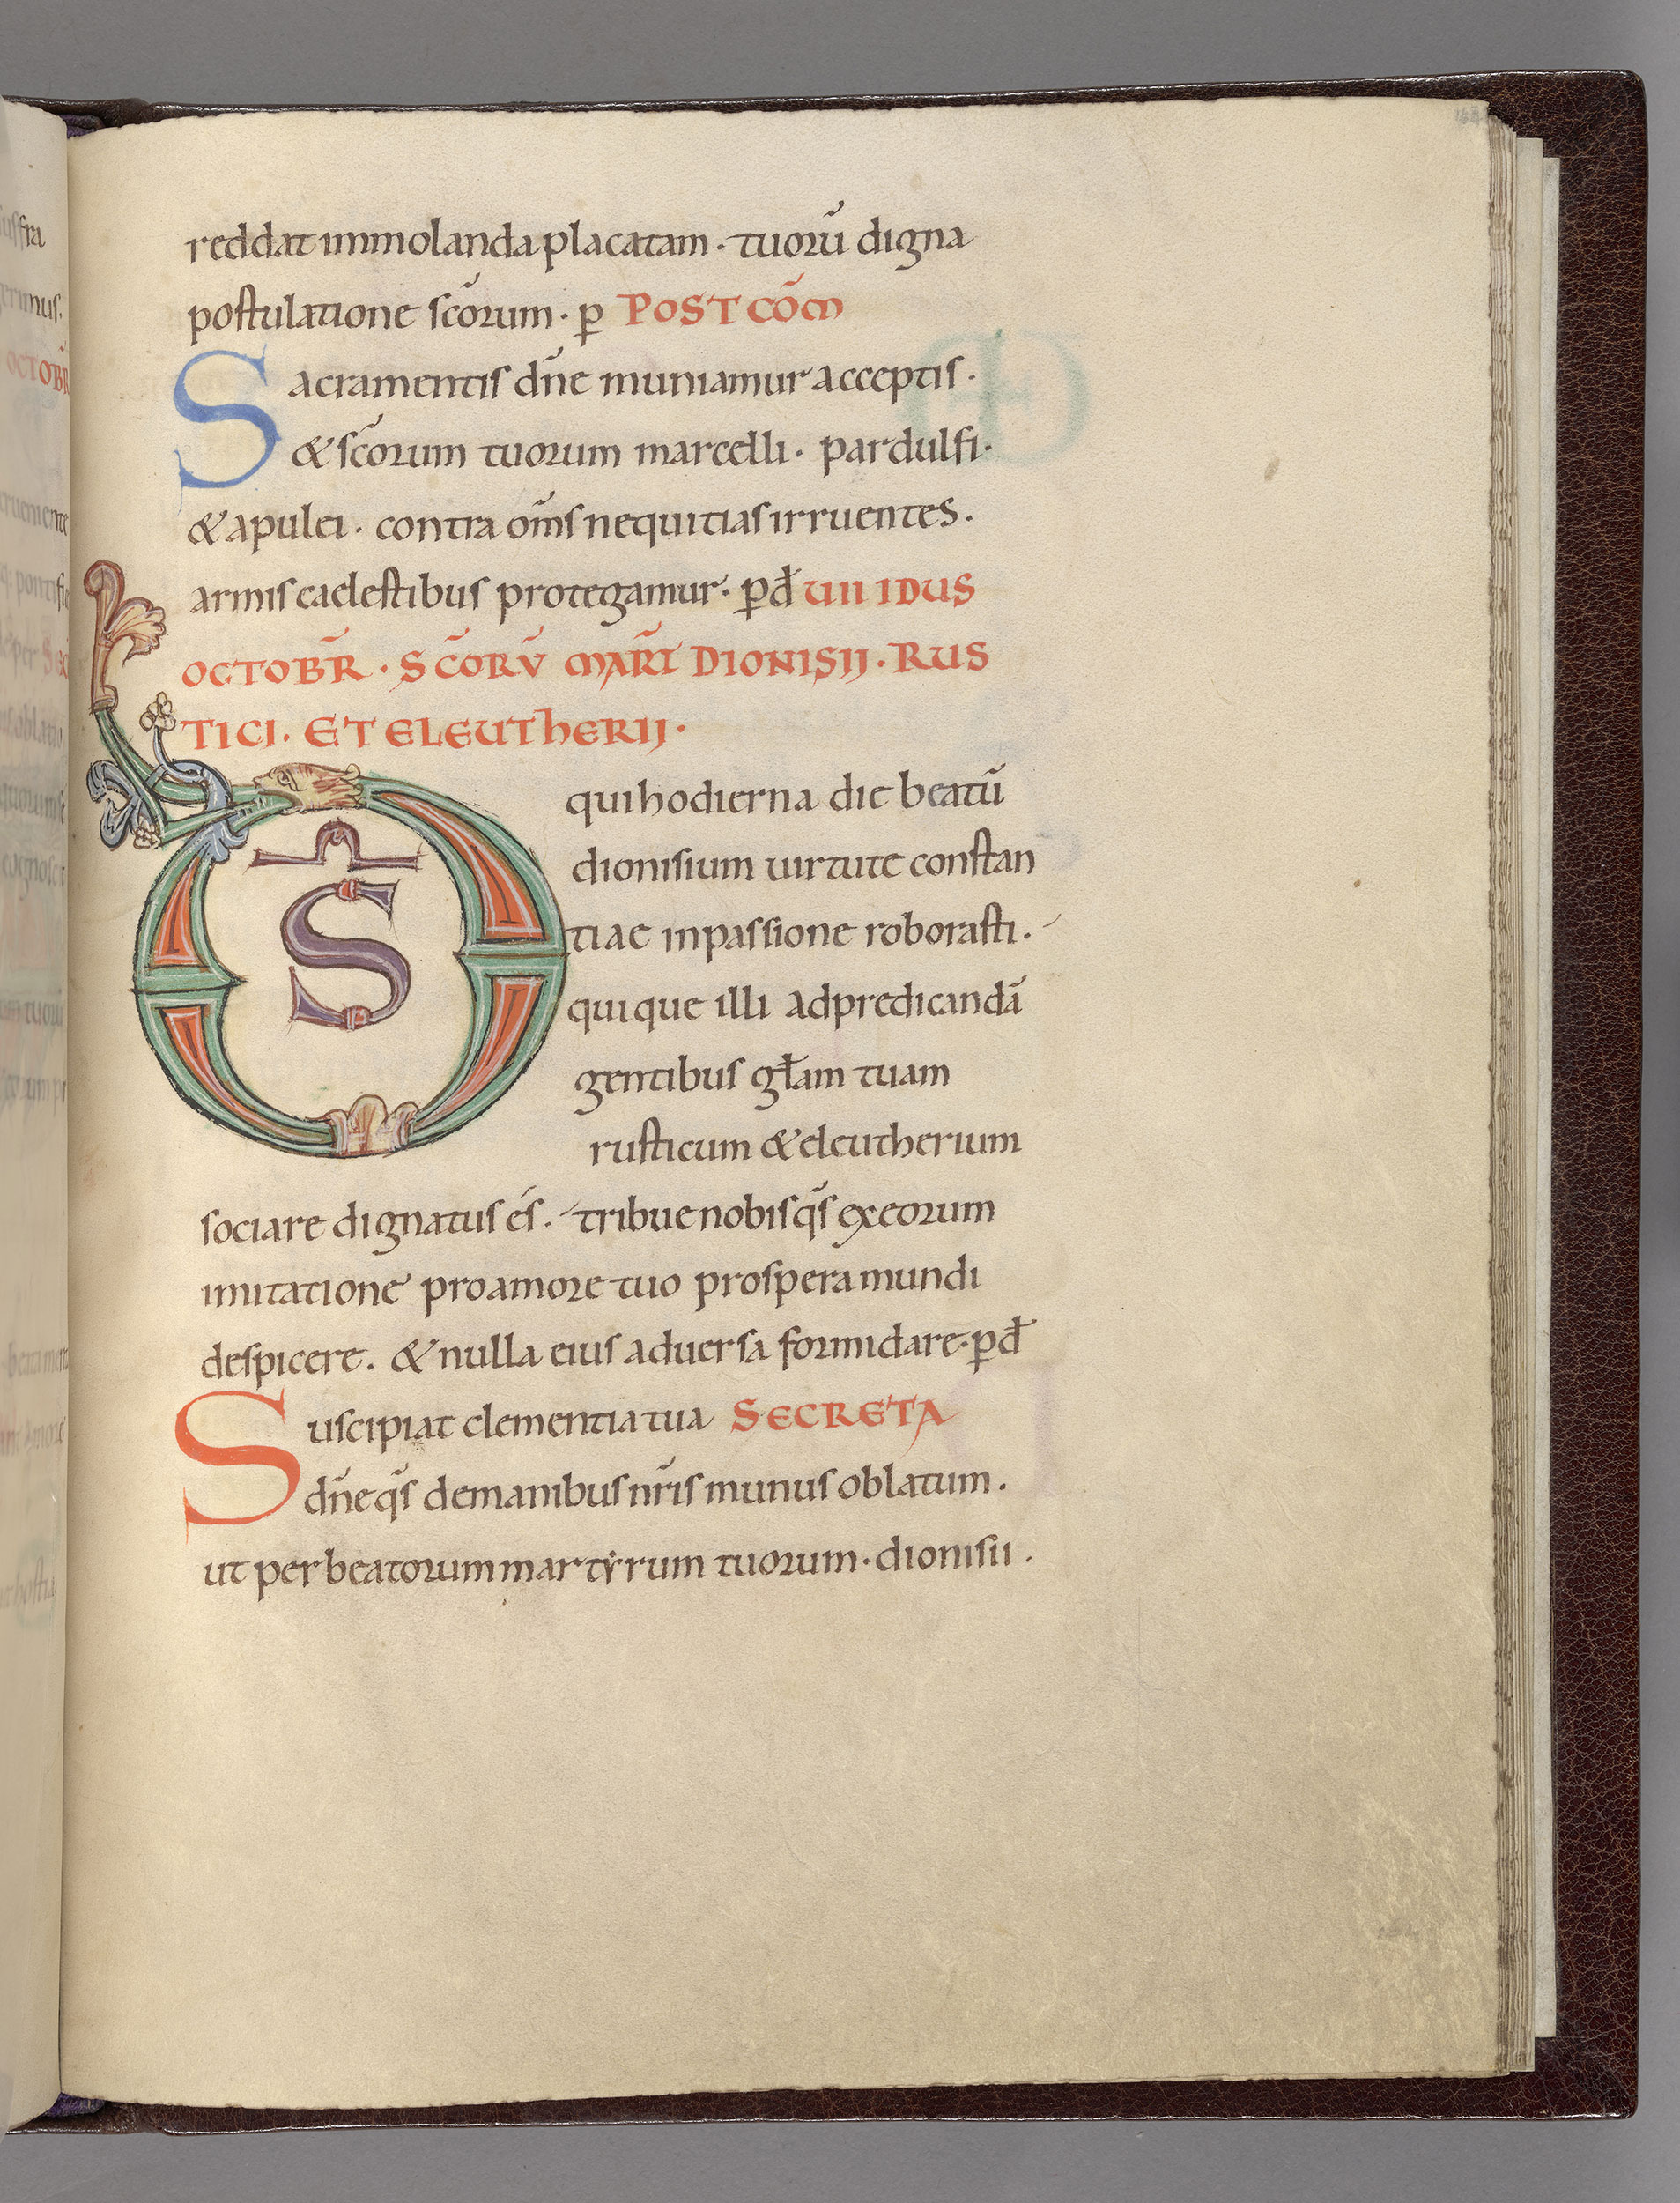 reddat immolanda placatam. tuorū digna
postulatione scōrum. p̲ POST COM̄
Sacramentis dn̄e muniamur acceptis.
& scōrum tuorum marcelli. pardulfi.
& apulei. contra om̄s nequitias irruentes.
armis caelestibus protegamur. p̲ đ VII IDUS
OCTOBR̄. SCŌRV̄ MAR̄T DIONISIJ. RUS
TICI. ET ELEUTHERIJ.
DS̄ qui hodierna die beatū
dionisium uirtute constan
tiae in passione roborasti.
quique illi ad predicandā
gentibus głam tuam
rusticum & eleutherium
sociare dignatus és. tribue nobis qs̄ ex eorum
imitatione pro amore tuo prospera mundi
despicere. & nulla eius aduersa formidare. p̲ đ
Suscipiat clementia tua SECRETA
dn̄e qs̄ de manibus nr̄is munus oblatum.
ut per beatorum martẏrum tuorum. dionisii.